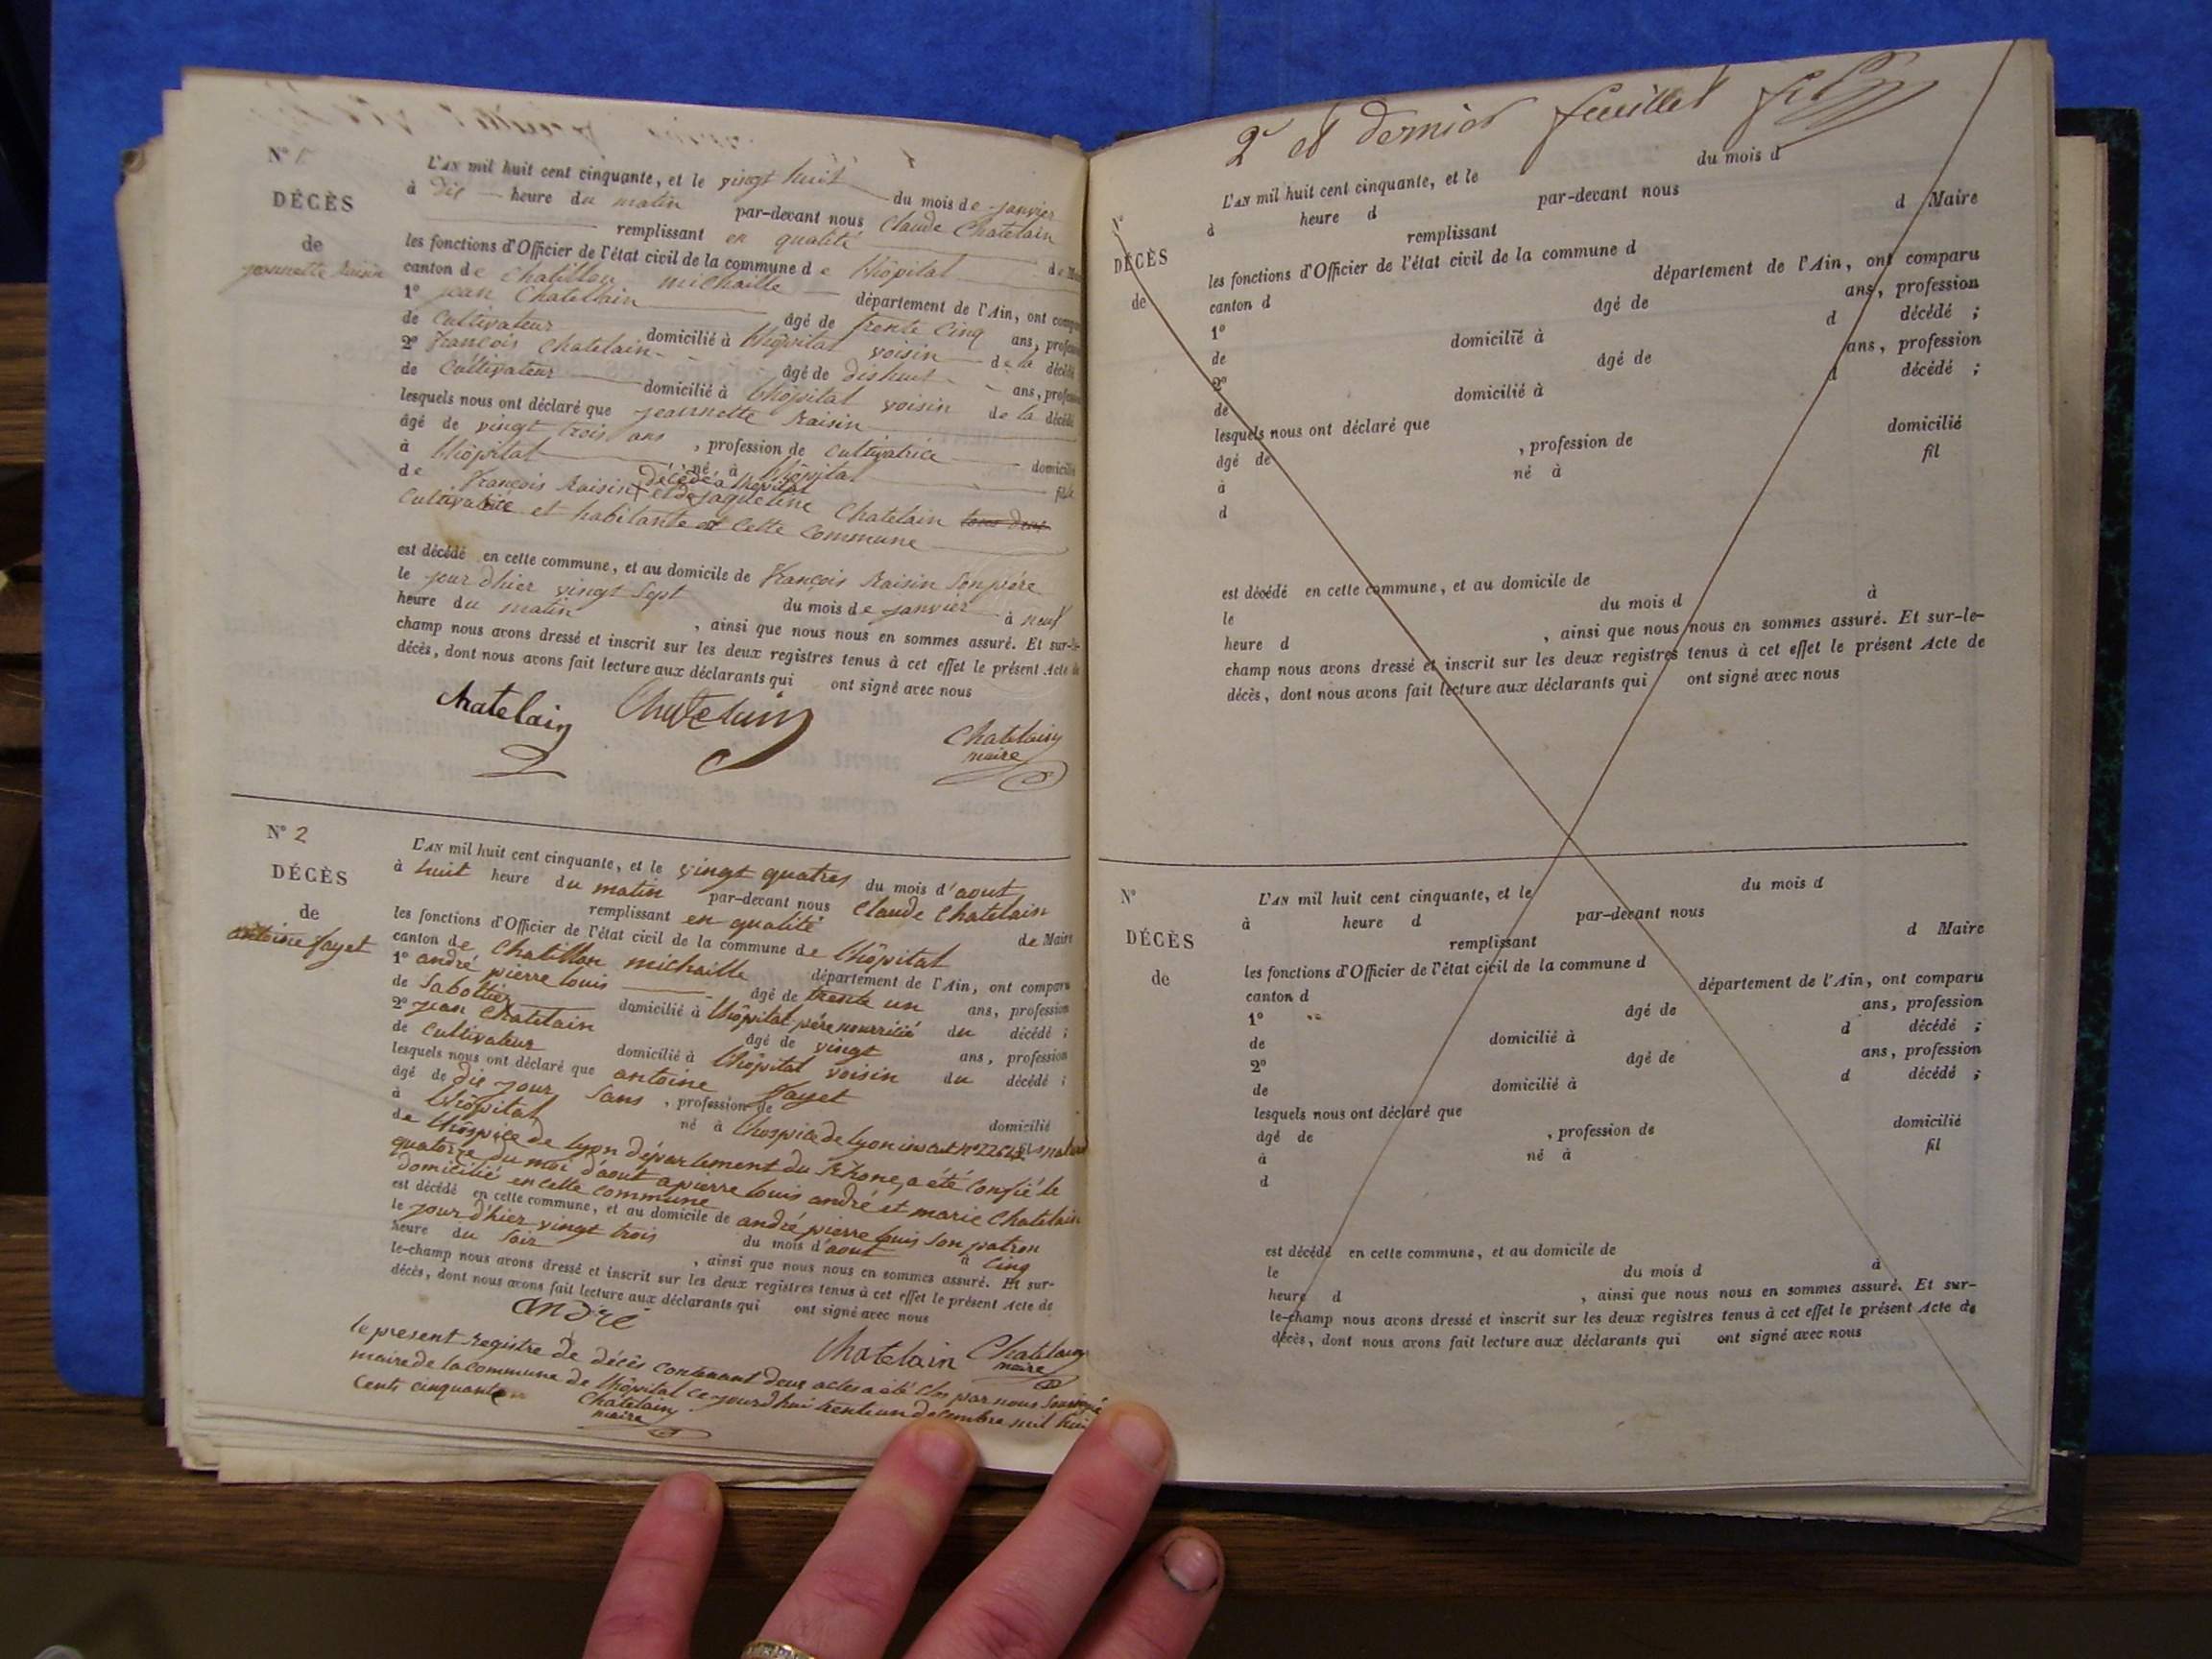 N° 1
DÉCÈS
de
jeannette Raisin
L'AN mil huit cent cinquante, et le vingt huit du mois de janvier
à dix heure du matin par-devant nous Claude Chatelain
remplissant en qualité de Maire
les fonctions d'Officier de l'état civil de la commune de l'hôpital
canton de Chatillon michaille département de l'Ain, ont comparu
1° jean Chatellain âgé de trente cinq ans, profession
de Cultivateur domicilié à l'hôpital voisin de la décédé
2° francois Chatelain âgé de dishuit ans, profession
de Cultivateur domicilié à l'hôpital voisin de la décédé
lesquels nous ont déclaré que jeannette Raisin
âgé de vingt trois ans, profession de Cultivatrice domicilié
à l'hôpital né à l'hôpital fille
décédé à l'hopital
de francois Raisin et de jaqueline Chatelain tous deux
Cultivatrice et habitante de cette commune
est décédé en cette commune, et au domicile de françois Raisin son père
le jour d'hier vingt sept du mois de janvier à neuf
heure du matin, ainsi que nous nous en sommes assuré. Et sur-le-
champ nous avons dressé et inscrit sur les deux registres tenus à cet effet le présent Acte de
décès, dont nous avons fait lecture aux déclarants qui ont signé avec nous
Chatelain Chatelain
Chatelain
maire
N° 2
DÉCÈS
de
antoine fayet
L'AN mil huit cent cinquante, et le vingt quatres du mois d'aout
à huit heure du matin par-devant nous Claude Chatelain
remplissant en qualité de Maire
les fonctions d'Officier de l'état civil de la commune de l'hôpital
canton de Chatillon michaille département de l'Ain, ont comparu
1° andré pierre louis âgé de trente un ans, profession
de Sabottier domicilié à l'hôpital père nourricié du décédé ;
2° jean Chatelain âgé de vingt ans, profession
de Cultivateur domicilié à l'hôpital voisin du décédé ;
lesquels nous ont déclaré que antoine fayet
âgé de dix jour Sans, profession de domicilié
à l'hôpital né à l'hospice de lyon inscrit n° fils naturel
de l'hospice de lyon département du Rhone, a été confié le
quatorze du moi d'aout a pierre louis andré et marie Chatelain
domicilié en cette commune
est décédé en cette commune, et au domicile de andré pierre louis son patron
le jour d'hier vingt trois du mois d'aout à cinq
heure du soir, ainsi que nous nous en sommes assuré. Et sur-
le-champ nous avons dressé et inscrit sur les deux registres tenus à cet effet le présent Acte de
décès, dont nous avons fait lecture aux déclarants qui ont signé avec nous
andré
Chatelain Chatelain
maire
le present Registre de décès contenant deux actes a été Clos par nous soussigné
maire de la commune de l'hôpital ce jourd'hui trente un decembre mil huit
Cents cinquante
Chatelain
maire
2e et dernier feuillet
N°
DÉCÈS
de
L'AN mil huit cent cinquante, et le du mois d
à heure d par-devant nous
remplissant d Maire
les fonctions d'Officier de l'état civil de la commune d
canton d département de l'Ain, ont comparu
1° âgé de ans, profession
de domicilié à d décédé ;
2° âgé de ans, profession
de domicilié à d décédé ;
lesquels nous ont déclaré que
âgé de , profession de domicilié
à né à fil
d
est décédé en cette commune, et au domicile de
le du mois d à
heure d , ainsi que nous nous en sommes assuré. Et sur-le-
champ nous avons dressé et inscrit sur les deux registres tenus à cet effet le présent Acte de
décès, dont nous avons fait lecture aux déclarants qui ont signé avec nous
N°
DÉCÈS
de
L'AN mil huit cent cinquante, et le du mois d
à heure d par-devant nous
remplissant d Maire
les fonctions d'Officier de l'état civil de la commune d
canton d département de l'Ain, ont comparu
1° âgé de ans, profession
de domicilié à d décédé ;
2° âgé de ans, profession
de domicilié à d décédé ;
lesquels nous ont déclaré que
âgé de , profession de domicilié
à né à fil
d
est décédé en cette commune, et au domicile de
le du mois d à
heure d , ainsi que nous nous en sommes assuré. Et sur-
le-champ nous avons dressé et inscrit sur les deux registres tenus à cet effet le présent Acte de
décès, dont nous avons fait lecture aux déclarants qui ont signé avec nous